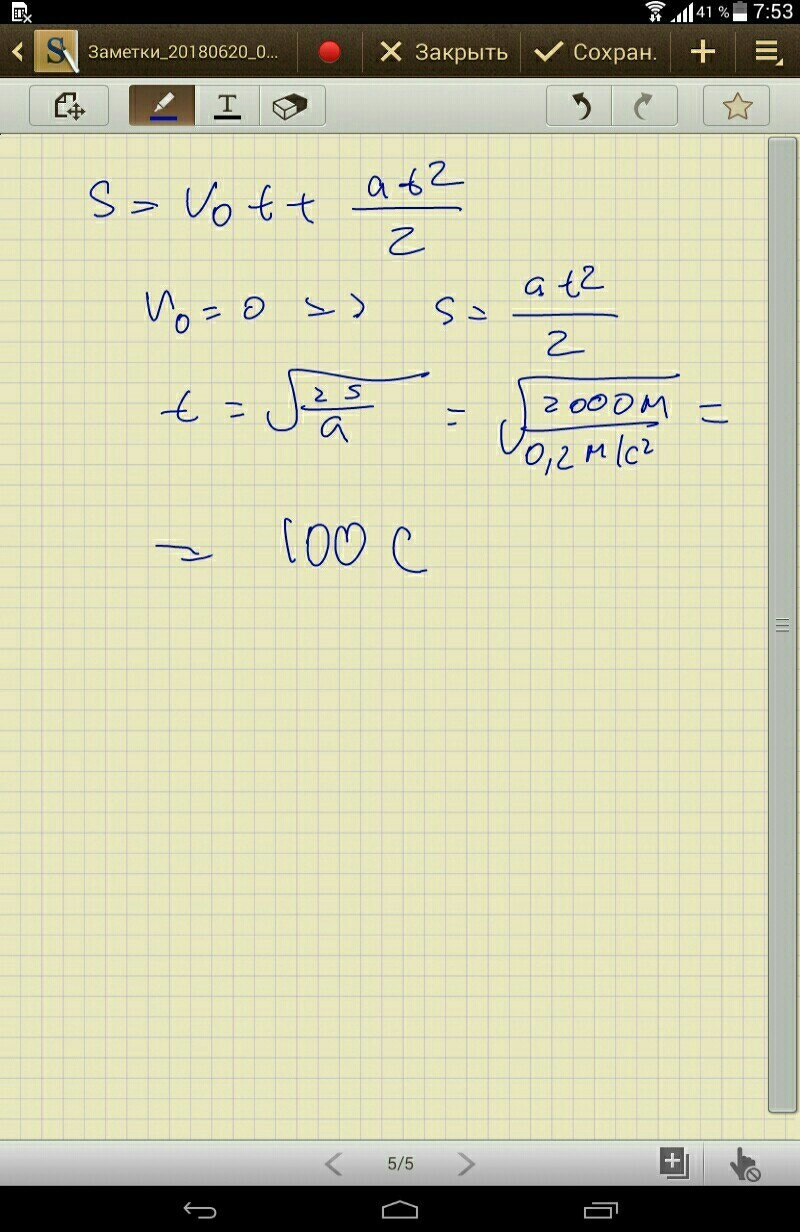 41 % 7:53
Заметки_20180620_0... Закрыть Сохран.
T
S = V₀t + at²/2
V₀ = 0 => S = at²/2
t = √(2S/a) = √(2000м/0,2м/с²) =
= 100 с
5/5